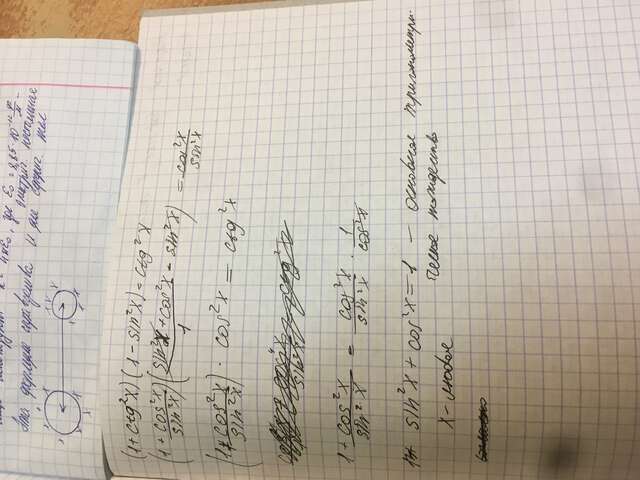 k = 4πε₀, где ε₀ = 8,85 · 10⁻¹² Ф/м
электрич. постоянная
Эта формула справедлива и для сферич. тел
(1 + ctg²x)(1 - sin²x) = ctg²x
(1 + cos²x/sin²x)((sin²x + cos²x - sin²x)/1) = cos²x/sin²x
(1 + cos²x/sin²x) · cos²x = ctg²x
1 + cos²x/sin²x = cos²x/sin²x · 1/cos²x
sin²x + cos²x = 1 - основное тригонометри-
ческое тождество
x - любое